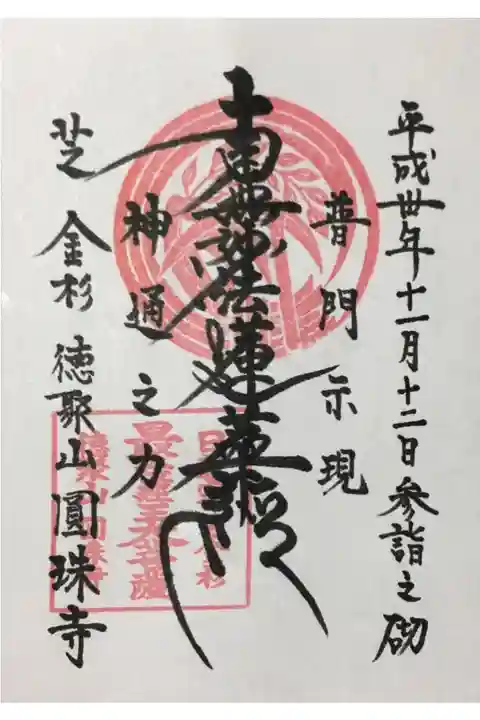 平成丗年十一月十二日参詣之砌
普門示現
南無妙法蓮華経
神通之力
芝 金杉 徳聚山 圓珠寺